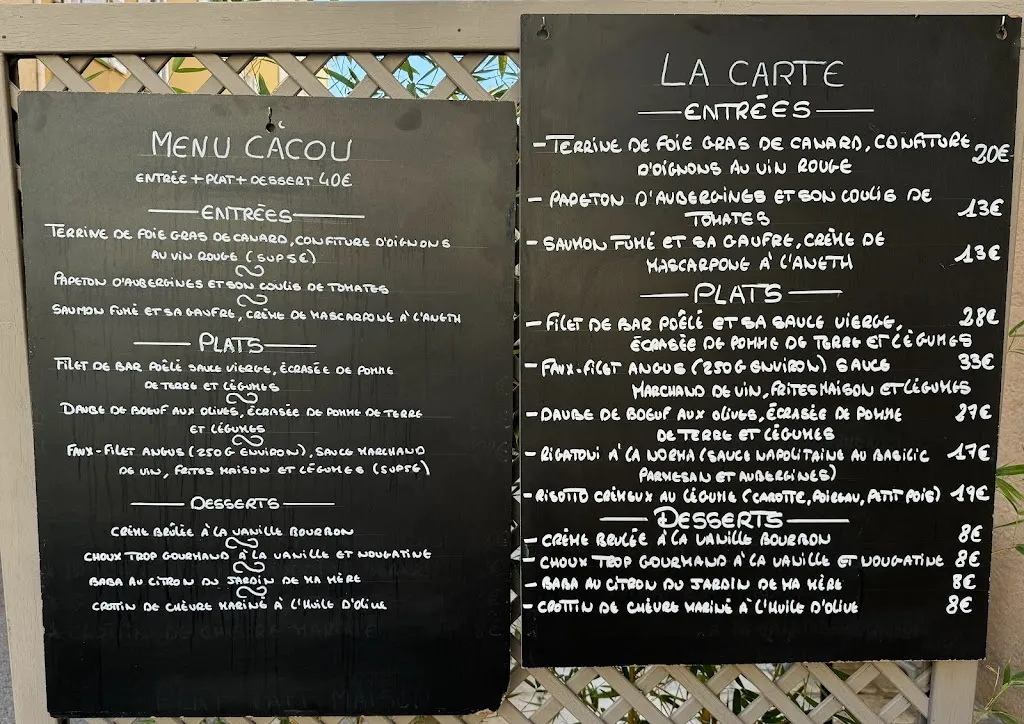 MENU CACOU
ENTRÉE + PLAT + DESSERT 40€
ENTRÉES
TERRINE DE FOIE GRAS DE CANARD, CONFITURE D'OIGNONS
AU VIN ROUGE (SUP5€)
PAPETON D'AUBERGINES ET SON COULIS DE TOMATES
SAUMON FUMÉ ET SA GAUFRE, CRÈME DE MASCARPONE À L'ANETH
PLATS
FILET DE BAR POÊLÉ SAUCE VIERGE, ÉCRASÉE DE POMME
DE TERRE ET LÉGUMES
DAUBE DE BOEUF AUX OLIVES, ÉCRASÉE DE POMME DE TERRE
ET LÉGUMES
FAUX-FILET ANGUS (250G ENVIRON), SAUCE MARCHAND
DE VIN, FRITES MAISON ET LÉGUMES (SUP5€)
DESSERTS
CRÈME BRÛLÉE À LA VANILLE BOURBON
CHOUX TROP GOURMAND À LA VANILLE ET NOUGATINE
BABA AU CITRON DU JARDIN DE MA MÈRE
CROTTIN DE CHÈVRE MARINÉ À L'HUILE D'OLIVE
LA CARTE
ENTRÉES
- TERRINE DE FOIE GRAS DE CANARD, CONFITURE 20€
D'OIGNONS AU VIN ROUGE
- PAPETON D'AUBERGINES ET SON COULIS DE
TOMATES 13€
- SAUMON FUMÉ ET SA GAUFRE, CRÈME DE
MASCARPONE À L'ANETH 13€
PLATS
- FILET DE BAR POÊLÉ ET SA SAUCE VIERGE, 28€
ÉCRASÉE DE POMME DE TERRE ET LÉGUMES
- FAUX-FILET ANGUS (250G ENVIRON) SAUCE 33€
MARCHAND DE VIN, FRITES MAISON ET LÉGUMES
- DAUBE DE BOEUF AUX OLIVES, ÉCRASÉE DE POMME 27€
DE TERRE ET LÉGUMES
- RIGATONI A LA NORMA (SAUCE NAPOLITAINE AU BASILIC 17€
PARMESAN ET AUBERGINES)
- RISOTTO CRÉMEUX AU LÉGUME (CAROTTE, POIREAU, PETIT POIS) 19€
DESSERTS
- CRÈME BRULÉE À LA VANILLE BOURBON 8€
- CHOUX TROP GOURMAND À LA VANILLE ET NOUGATINE 8€
- BABA AU CITRON DU JARDIN DE MA MÈRE 8€
- CROTTIN DE CHÈVRE MARINÉ À L'HUILE D'OLIVE 8€